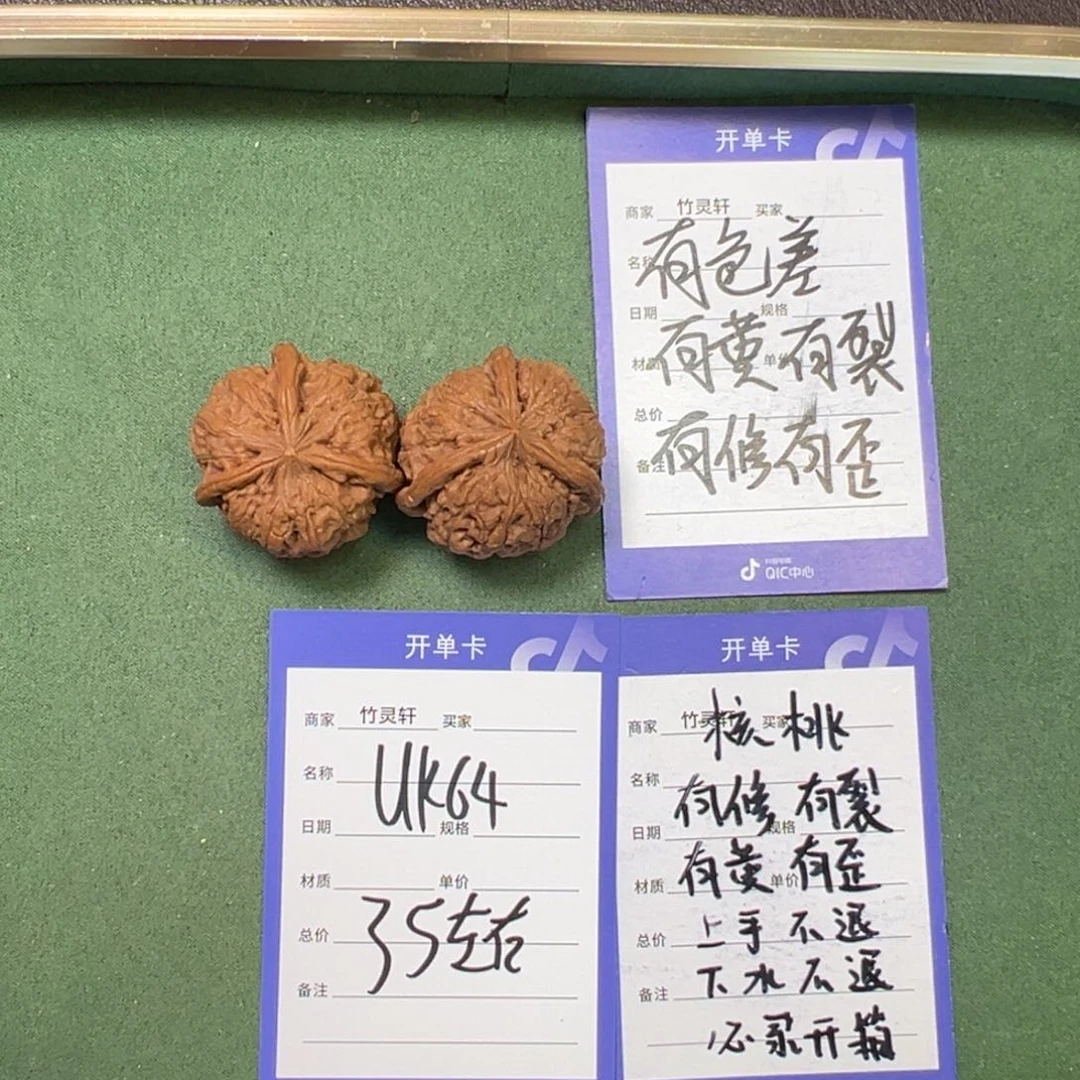 开单卡
商家 竹灵轩 买家
名称
有色差
日期 规格
材质 单价
有黄有裂
总价
备注
有修有歪
QIC中心
开单卡
商家 竹灵轩 买家
名称
UK64
日期 规格
材质 单价
总价
35左右
备注
开单卡
商家 竹灵轩 买家
核桃
名称
有修 有裂
日期 规格
材质 单价
有黄 有歪
总价
上手 不退
备注
下水不退
必录开箱